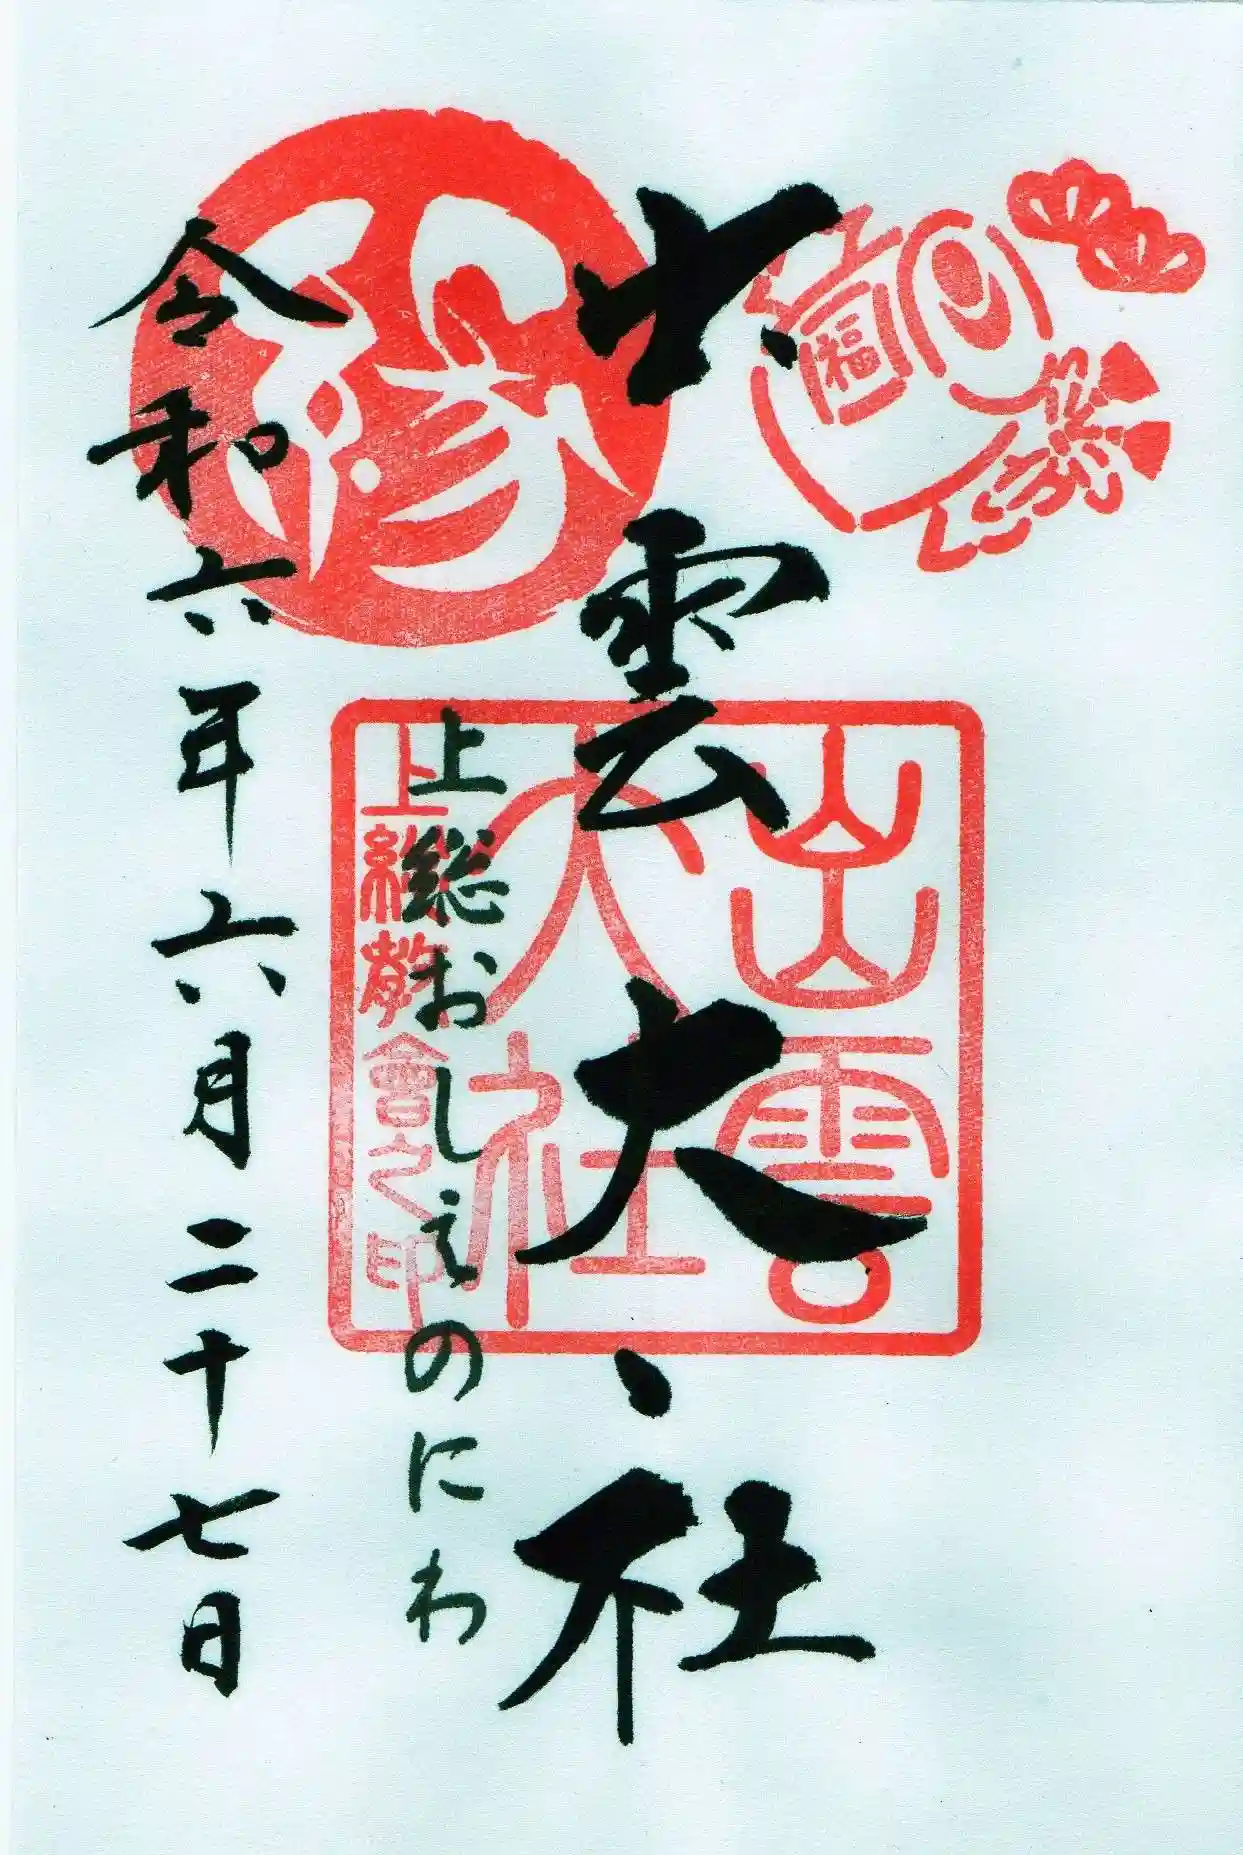 福
出雲大社
出雲
大社
上総教會之印
上総おしえのにわ
縁
令和六年六月二十七日